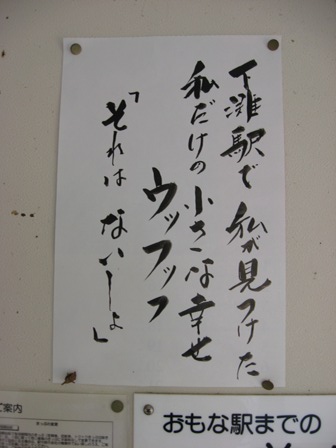 下灘駅で 私が見つけた
私だけの 小さな幸せ
ウッフッフ
「それは ないしょ」
ご案内
おもな駅までの